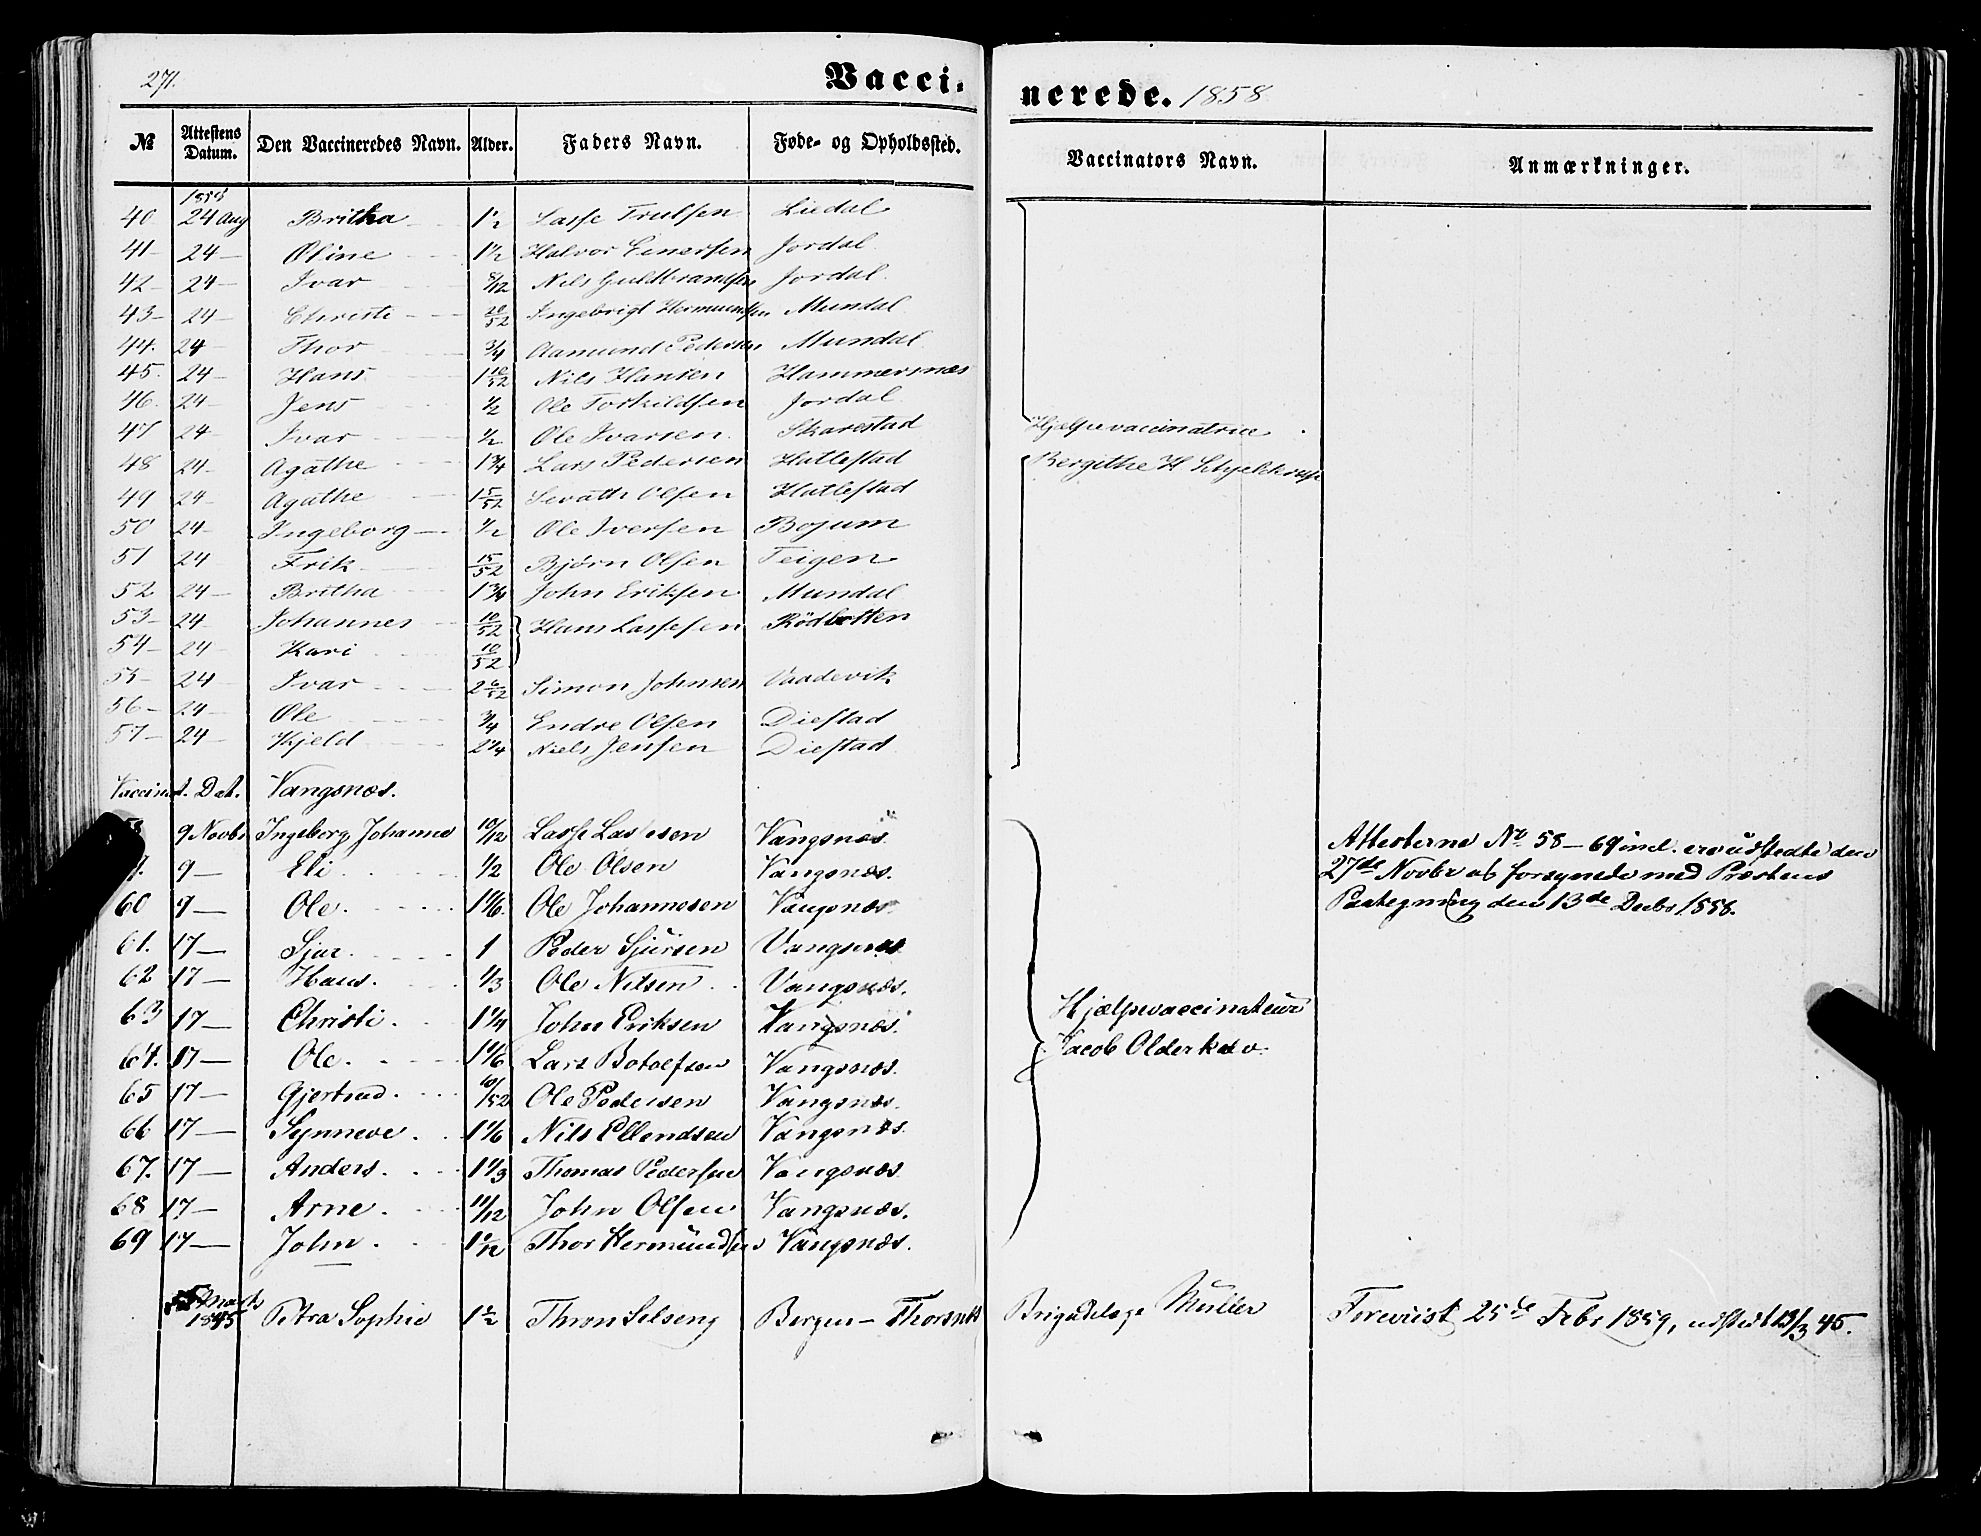 271.
Vacci- nerede. 1858
№ Attestens Datum. Den Vaccineredes Navn. Alder. Faders Navn. Føde- og Opholdssted. Vaccinators Navn. Anmærkninger.
1858
40 24 Aug Britha 1 1/2 Lasse Trulsen Liedal
41 24 Oline 1 1/2 Halvor Einersen Jordal
42 24 Ivar 8/12 Nils Guldbrandsen Jordal
43 24 Christi 20/52 Ingebrigt Hermundsen Mundal
44. 24 Thor 3/4 Aamund Pedersen Mundal
45. 24 Hans 1 10/52 Nils Hansen Hammersnæs
46. 24 Jens 1/2 Ole Torkildsen Jordal
47 24 Ivar 1/2 Ole Ivarsen Skarestad Hjelpevaccinatrice
48 24 Agathe 1 3/4 Lars Pedersen Hatlestad Bergithe H
49 24 Agathe 1 5/52 Olsen Hatlestad
50 24 Ingeborg 1/2 Ole Iversen Bojum
51 24 Erik 15/52 Bjørn Olsen Teigen
52 24 Britha 1 3/4 John Eriksen Mundal
53 24 Johannes 10/52 Hans Lassesen Rödbotten
54 24 Kari 10/52
55 24 Ivar 2 6/52 Simon Johnsen Vaadevik
56 24 Ole 3/4 Endre Olsen Diestad
57 24 Kjeld 2 1/4 Niels Jensen Diestad
Vaccinat. Dat. Vangsnæs.
9 Novbr Ingeborg Johanne 10/12 Lasse Lassesen Vangsnæs Attesterne No 58 – 69 incl. ere udstedte den
9 Eli 1/2 Ole Olsen Vangsnæs. 27de Novbr og forsynede med Præstens
60 9 Ole 1 1/6 Ole Johannesen Vangsnæs Paategning den 13de Decbr 1858.
61. 17 Sjur 1 Peder Sjursen Vangsnæs
62 17 Hans 1/3 Ole Nilsen Vangsnæs.
63 17 Christi 1 1/4 John Eriksen Vangsnæs. Hjælpevaccinateur
64. 17 Ole 1 1/6 Lars Botolfsen Vangsnæs. Jacob Olderkav
65 17 Gjertrud 10/52 Ole Pedersen Vangsnæs.
66 17 Synneve 1 1/6 Nils Ellendsen Vangsnæs.
67. 17 Anders 1 1/3 Thomas Pedersen Vangsnæs.
68 17 Arne 11/12 John Olsen Vangsnæs.
69 17 John 1 1/12 Thor Hermundsen Vangsnæs.
Marts 1845 Petra Sophie 1 1/2 Thron Selseng Bergen – Thorsnæs Brigadelæge Müller Foreviist 25de Febr 1859, udstedt 13/3 45.